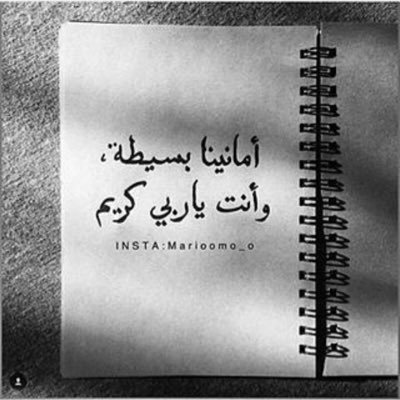 أمانينا بسيطة،
وأنت ياربي كريم
INSTA:Marioomo_o